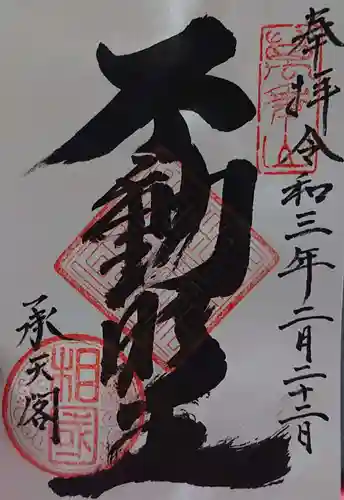 奉拝 令和三年二月二十二日
不動明王
承天閣
相国